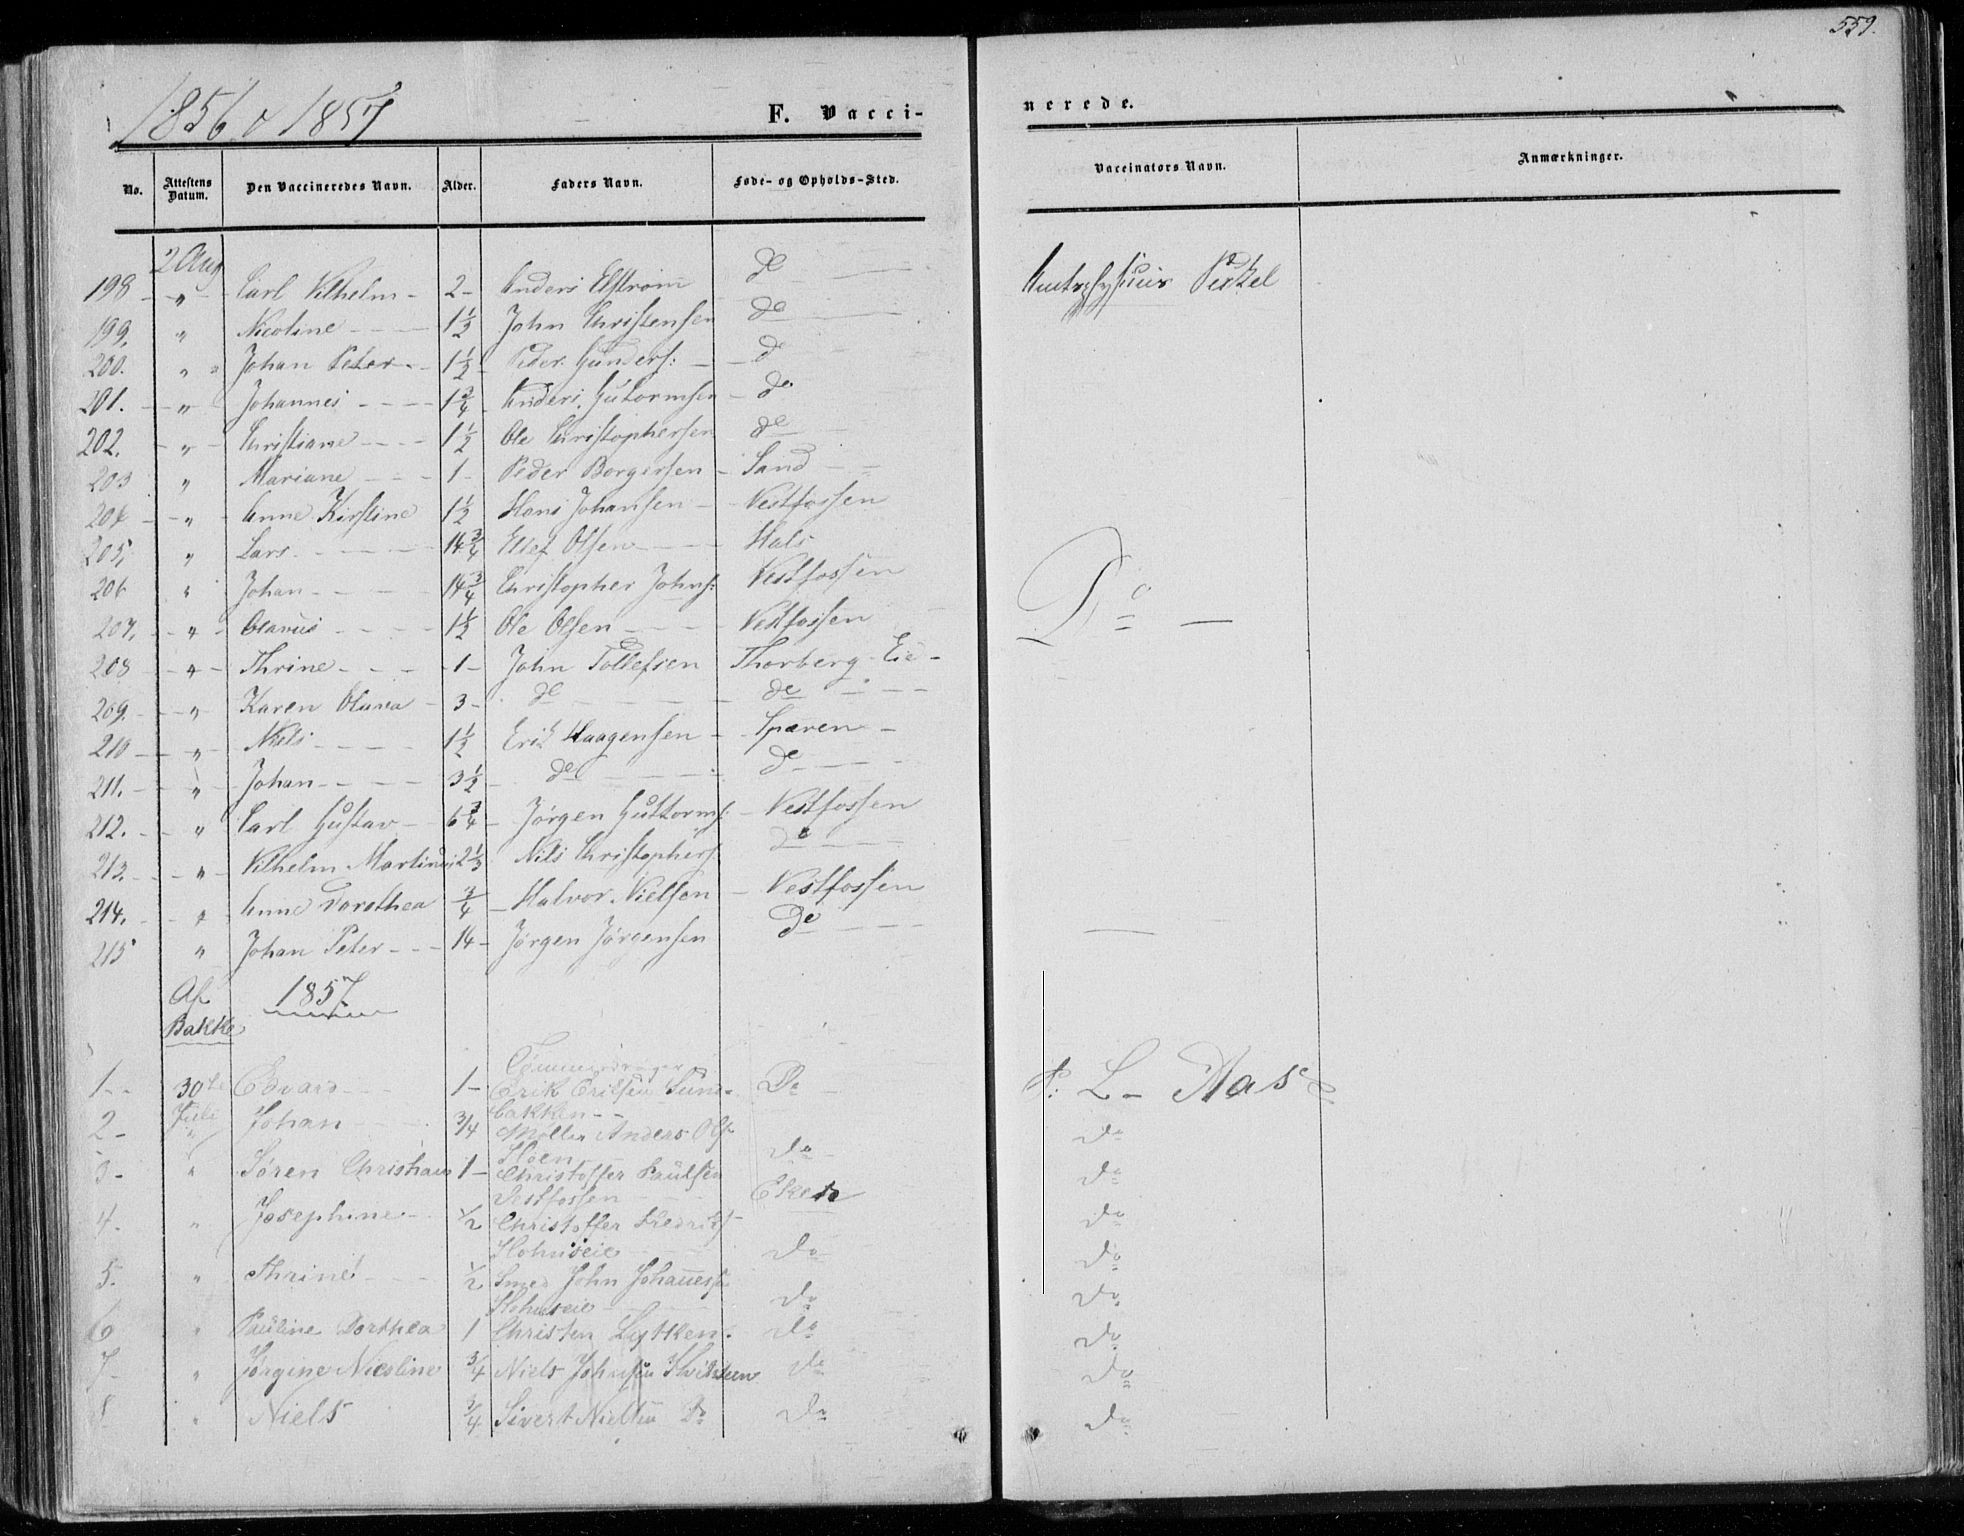 559.
1856 & 1857
F. Vacci-
nerede.
No. Attestens Datum. Den Vaccineredes Navn. Alder. Faders Navn. Føde- og Opholds-Sted. Vaccinators Navn. Anmærkninger.
2 Aug
198 " Carl Vilhelm 2 Anders Elstrøm do Perkel
199. " Nicoline 1½ John Christensen do
200. " Johan Peter 1½ Peder Gunders: do
201. " Johannes 1¾ Anders Gutormsen do
202. " Christiane 1½ Ole Christophersen do
203 " Mariane 1 Peder Borgersen Sand
204 " Anne Kirstine 1½ Hans Johansen Vestfossen
205. " Lars 14¾ Ellef Olsen Hals
206 " Johan 14¾ Christopher Johns: Vestfossen
207. " Olavus 1½ Ole Olsen Vestfossen Do
208 " Thrine 1 John Tollefsen Thorberg Eie
209. " Karen Olavea 3 do do
210 " Niels 1½ Erik Haagensen Sparen
211. " Johan 3½ do do
212. " Carl Gustav 6¾ Jørgen Guttorms: Vestfossen
213. " Vilhelm Martin 2⅓ Nils Christophers: do
214. " Anne Dorothea ¾ Halvor Nielsen Vestfossen
215 " Johan Peter 14 Jørgen Jørgensen Do
Af Bakke 1857
1 30te Juli Edvard 1 Erik Erilsen Sundbakken Do L. Aas
2 " Johan ¾ Møller Anders Ols: Hoen Do Do
3 " Søren Christian 1 Christoffer Paulsen Vestfossen Eker Do
4. " Josephine ½ Christoffer Fredriks: Do Do
5. " Thrine ½ Smed John Johanness: Do Do
6 " Pauline Dorthea 1 Christen Lytken. Do Do
7 " Jørgine Nicoline ¾ Niels Johnsen Do Do
8 " Niels ¾ Sivert Nielsen Do Do Do